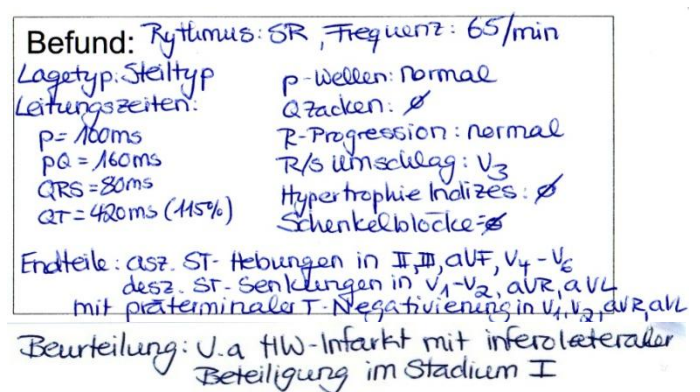 Befund: Rythmus: SR, Frequenz: 65/min
Lagetyp: Steiltyp
Leitungszeiten:
P= 100ms
PQ = 160ms
QRS = 80ms
QT = 420ms (115%)
p-Wellen: normal
Qzacken: ø
R-Progression: normal
R/S Umschlag: V3
Hypertrophie Indizes: ø
Schenkelblöcke=ø
Endteile: asz. ST-Hebungen in II, III, aVF, V4-V6
desz. ST-Senkungen in V1-V2, aVR, aVL
mit präterminaler T-Negativierung in V1, V2, aVR, aVL
Beurteilung: V.a HW-Infarkt mit inferolateraler
Beteiligung im Stadium I